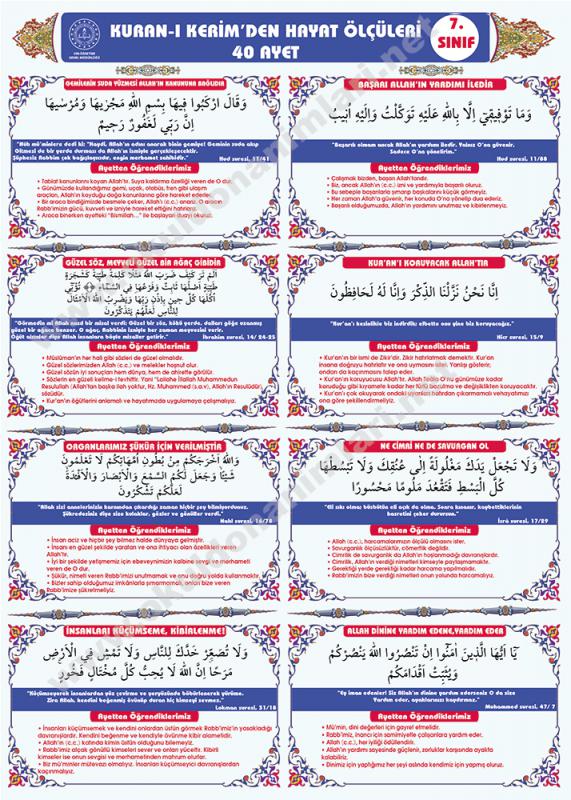 KURAN-I KERİM'DEN HAYAT ÖLÇÜLERİ
40 AYET
7.
SINIF
GEMİLERİN SUDA YÜZMESİ ALLAH'IN KANUNUNA BAĞLIDIR
وَقَالَ ارْكَبُوا فِيهَا بِسْمِ اللّٰهِ مَجْرٰۭيهَا وَمُرْسٰيهَا
اِنَّ رَبّ۪ي لَغَفُورٌ رَح۪يمٌ
"Nûh mü'minlere dedi ki: "Haydi, Allah'ın adını anarak binin gemiye! Geminin suda akıp
Gitmesi de bir yerde durması da Allah'ın ismiyle gerçekleşecektir.
Şüphesiz Rabbim çok bağışlayandır, engin merhamet sahibidir."
Hud suresi, 11/41
Ayetten Öğrendiklerimiz
• Tabiat kanunlarını koyan Allah'tır. Suya kaldırma özelliği veren de O'dur.
• Günümüzde kullandığımız gemi, uçak, otobüs, tren gibi ulaşım
araçları, Allah'ın koyduğu doğa kanunlarına göre hareket ederler.
• Bir araca bindiğimizde besmele çeker, Allah'ı (c.c.) anarız. O aracın
Rabb'imizin gücü, kuvveti ve izniyle hareket ettiğini hatırlarız.
• Araca binerken ayetteki "Bismillah…" ile başlayan duayı okuruz.
BAŞARI ALLAH'IN YARDIMI İLEDİR
وَمَا تَوْف۪يق۪ٓي اِلَّا بِاللّٰهِ عَلَيْهِ تَوَكَّلْتُ وَاِلَيْهِ اُن۪يبُ
"Başarılı olmam ancak Allah'ın yardımı iledir. Yalnız O'na güvenir,
Sadece O'na yönelirim."
Hud suresi, 11/88
Ayetten Öğrendiklerimiz
• Çalışmak bizden, başarı Allah'tandır.
• Biz, ancak Allah'ın (c.c.) izni ve yardımıyla başarılı oluruz.
• Bu sebeple başarılarla şımarıp başkalarını küçük görmeyiz.
• Her zaman Allah'a güvenir, her konuda O'na yönelip dua ederiz.
• Başarılı olduğumuzda, Allah'ın yardımını unutmaz ve kibirlenmeyiz.
GÜZEL SÖZ, MEYVELİ GÜZEL BİR AĞAÇ GİBİDİR
اَلَمْ تَرَ كَيْفَ ضَرَبَ اللّٰهُ مَثَلًا كَلِمَةً طَيِّبَةً كَشَجَرَةٍ
طَيِّبَةٍ اَصْلُهَا ثَابِتٌ وَفَرْعُهَا فِي السَّمَٓاءِ تُؤْت۪ٓي
اُكُلَهَا كُلَّ ح۪ينٍ بِاِذْنِ رَبِّهَا وَيَضْرِبُ اللّٰهُ الْاَمْثَالَ
لِلنَّاسِ لَعَلَّهُمْ يَتَذَكَّرُونَ
"Görmedin mi Allah nasıl bir misal verdi: Güzel bir söz, kökü yerde, dalları göğe uzanmış
güzel bir ağaca benzer. O ağaç, Rabbinin izniyle her zaman meyvesini verir.
Öğüt alsınlar diye Allah insanlara böyle misaller getirir."
İbrahim suresi, 14/ 24-25
Ayetten Öğrendiklerimiz
• Müslüman'ın her hali gibi sözleri de güzel olmalıdır.
• Güzel sözlerimizden Allah (c.c.) ve melekler hoşnut olur.
• Güzel sözün iyi sonuçları hem dünya, hem de ahirette görülür.
• Sözlerin en güzeli kelime-i tevhittir. Yani "Lailahe İllallah Muhammedun
Resulullah (Allah'tan başka ilah yoktur, Hz. Muhammed (s.a.v), Allah'ın Resulüdür)
sözüdür.
• Kur'an'ın öğütlerini anlamalı ve hayatımızda uygulamaya çalışmalıyız.
KUR'AN'I KORUYACAK ALLAH'TIR
اِنَّا نَحْنُ نَزَّلْنَا الذِّكْرَ وَاِنَّا لَهُ لَحَافِظُونَ
"Kur'an'ı kesinlikle biz indirdik; elbette onu yine biz koruyacağız."
Hicr suresi, 15/9
Ayetten Öğrendiklerimiz
• Kur'an'ın bir ismi de Zikir'dir. Zikir hatırlatmak demektir. Kur'an
insana doğruyu hatırlatır ve onu uymasını ister. Yanlışı gösterir;
ondan da kaçınmasını talep eder.
• Kur'an'ın koruyucusu Allah'tır. Allah Teâlâ O'nu günümüze kadar
koruduğu gibi kıyamete kadar her türlü bozulma ve değişiklikten koruyacaktır.
• Kur'an'ı çok okuyarak ondaki uyarıları hatırdan çıkarmamalı vehayatımızı
ona göre şekillendirmeliyiz.
ORGANLARIMIZ ŞÜKÜR İÇİN VERİLMİŞTİR
وَاللّٰهُ اَخْرَجَكُمْ مِنْ بُطُونِ اُمَّهَاتِكُمْ لَا تَعْلَمُونَ
شَيْـًٔا وَجَعَلَ لَكُمُ السَّمْعَ وَالْاَبْصَارَ وَالْاَفْـِٔدَةَ
لَعَلَّكُمْ تَشْكُرُونَ
"Allah sizi annelerinizin karnından çıkardığı zaman hiçbir şey bilmiyordunuz.
Şükredesiniz diye size kulaklar, gözler ve gönüller verdi."
Nahl suresi, 16/78
Ayetten Öğrendiklerimiz
• İnsan aciz ve hiçbir şey bilmez halde dünyaya gelmiştir.
• İnsanı en güzel şekilde yaratan ve ona ihtiyacı olan özellikleri veren
Allah'tır.
• İyi bir şekilde yetişmemiz için ebeveynimizin kalbine sevgi ve merhameti
veren de O dur.
• Şükür, nimeti veren Rabb'imizi unutmamak ve onu doğru yolda kullanmaktır.
• Bizler sahip olduğumuz imkânlarla şımarmamalı, onları bize veren
Rabb'imize şükretmeliyiz.
NE CİMRİ NE DE SAVURGAN OL
وَلَا تَجْعَلْ يَدَكَ مَغْلُولَةً اِلٰى عُنُقِكَ وَلَا تَبْسُطْهَا
كُلَّ الْبَسْطِ فَتَقْعُدَ مَلُومًا مَحْسُورًا
"Eli sıkı olma; büsbütün eli açık da olma. Sonra kınanır, kaybettiklerinin
hasretini çeker durursun."
İsrâ suresi, 17/29
Ayetten Öğrendiklerimiz
• Allah (c.c.); harcamalarımızın ölçülü olmasını ister.
• Savurganlık ölçüsüzlüktür, cömertlik değildir.
• Cimrilik de savurganlık da Allah'ın hoşlanmadığı davranışlardır.
• Cimrilik, Allah'ın verdiği nimetleri kimseyle paylaşmamaktır.
• Gerektiği yerde gerektiği kadar harcama yapılmalıdır.
• Rabb'imizin bize verdiği nimetleri onun yolunda harcamalıyız.
İNSANLARI KÜÇÜMSEME, KİBİRLENME!
وَلَا تُصَعِّرْ خَدَّكَ لِلنَّاسِ وَلَا تَمْشِ فِي الْاَرْضِ
مَرَحًا اِنَّ اللّٰهَ لَا يُحِبُّ كُلَّ مُخْتَالٍ فَخُورٍ
"Küçümseyerek insanlardan yüz çevirme ve yeryüzünde böbürlenerek yürüme.
Zira Allah, kendini beğenmiş övünüp duran hiç kimseyi sevmez."
Lokman suresi, 31/18
Ayetten Öğrendiklerimiz
• İnsanları küçümsemek ve kendini onlardan üstün görmek Rabb'imiz'in yasakladığı
davranışlardır. Kendini beğenme ve kendiyle övünme kibir alametidir.
• Allah'ın (c.c.) katında kimin üstün olduğunu bilemeyiz.
• Rabb'imiz alçak gönüllü kimseleri sever ve onları yüceltir. Kibirli
kimseler ise onun sevgisi ve merhametinden mahrum olurlar.
• Biz mü'minler mütevazı olmalıyız. İnsanları küçümseyici davranışlardan
kaçınmalıyız.
ALLAH DİNİNE YARDIM EDENE,YARDIM EDER
يَٓا اَيُّهَا الَّذ۪ينَ اٰمَنُٓوا اِنْ تَنْصُرُوا اللّٰهَ يَنْصُرْكُمْ
وَيُثَبِّتْ اَقْدَامَكُمْ
"Ey iman edenler! Siz Allah'ın dinine yardım ederseniz O da size
Yardım eder, ayaklarınızı kaydırmaz."
Muhammed suresi, 47/ 7
Ayetten Öğrendiklerimiz
• Mü'min, dini değerleri için gayret etmelidir.
• Rabb'imiz, inancı için samimiyetle çalışanlara yardım eder.
• Allah (c.c.), her iyiliği ödüllendirir.
• Allah'ın yardımı sayesinde güçlenir, zorluklar karşısında ayakta
kalabiliriz.
• Dinimiz için yaptığımız her şeyi aslında kendimiz için yapmış oluruz.
www.okuldonanimlari.net